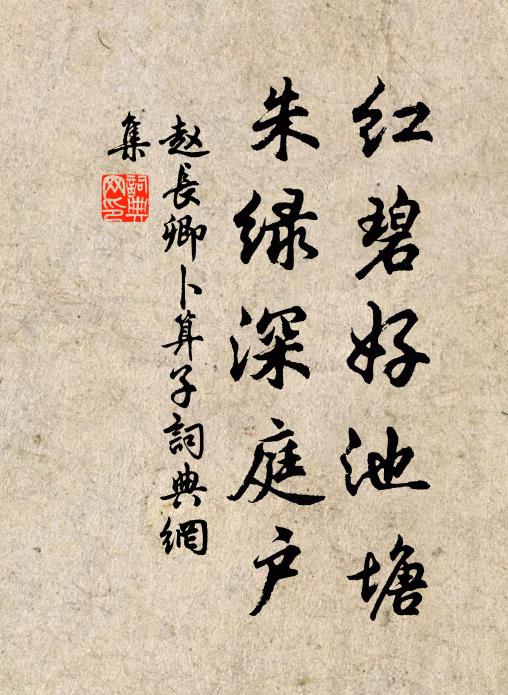 红碧好池塘
朱绿深庭户
赵長卿卜算子詞典網
集
詞典网印